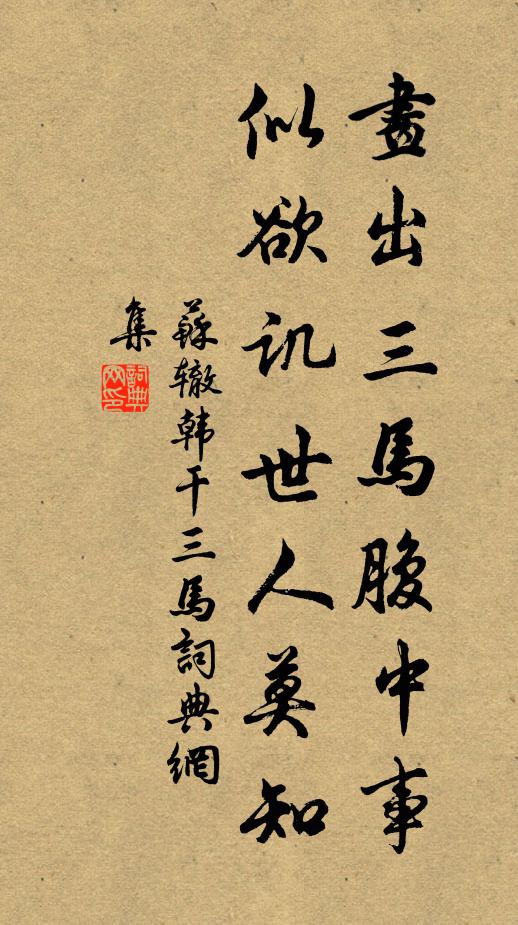 畫出三馬腹中事
似欲讥世人莫知
蘇辙韩干三馬詞典網
集
詞典
网印